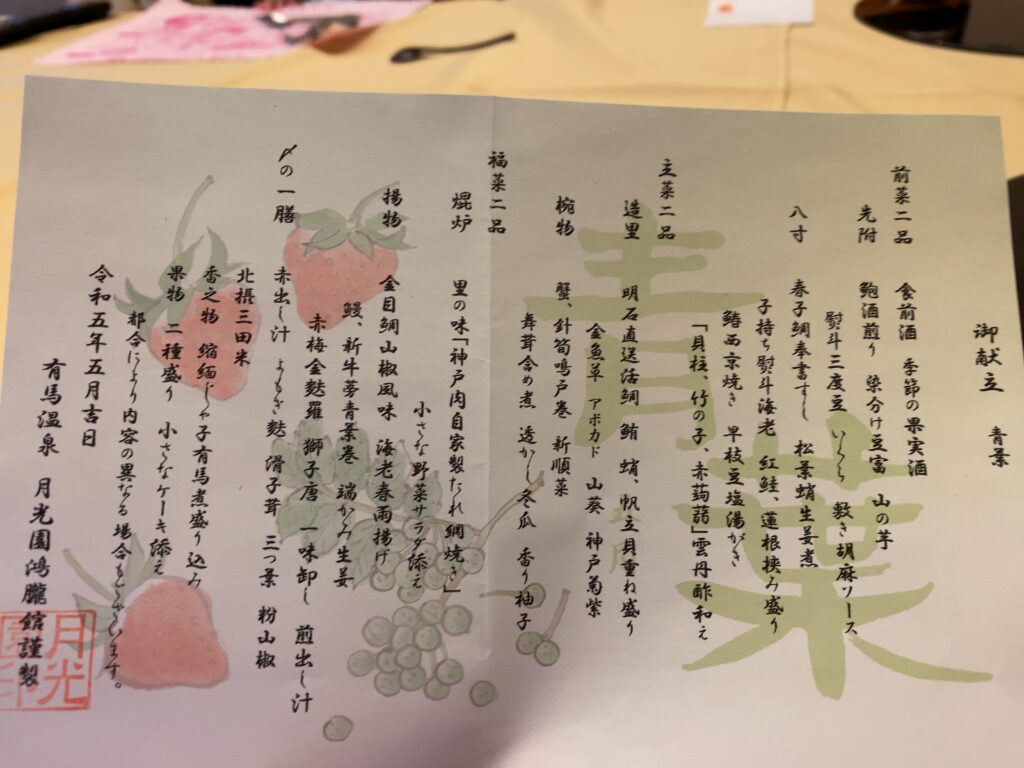 御献立 青葉
前菜二品 食前酒 季節の果実酒
先附 鮑酒煎り 染分け豆富 山の芋
熨斗三度豆 いくら 敷き胡麻ソース
八寸 春子鯛奉書すし 松葉蛸生姜煮
子持ち熨斗海老 紅鮭、蓮根挟み盛り
鰆西京焼き 早枝豆塩湯がき
「貝柱、竹の子、赤蒟蒻」雲丹酢和え
主菜二品
造里 明石直送活鯛 鮪 蛸、帆立貝重ね盛り
金魚草 アボカド 山葵 神戸菊紫
椀物 蟹、針筍鳴戸巻 新順菜
舞茸含め煮 透かし冬瓜 香り柚子
福菜二品
焜炉 里の味「神戸肉自家製たれ網焼き」
小さな野菜サラダ添え
揚物 金目鯛山椒風味 海老春雨揚げ
鰻、新牛蒡青葉巻 端かみ生姜
赤梅金麩羅 獅子唐 一味卸し 煎出し汁
〆の一膳 赤出し汁 よもぎ麩 滑子茸 三つ葉 粉山椒
北摂三田米
香之物 縮緬じゃこ有馬煮盛り込み
果物 二種盛り 小さなケーキ添え
都合により内容の異なる場合もございます。
令和五年五月吉日
有馬温泉 月光園鴻朧館謹製
青葉
月光園印